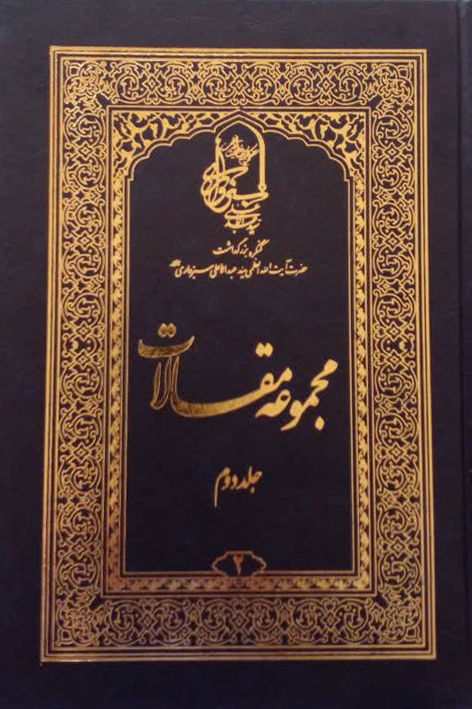 کنگره بزرگداشت
حضرت آیت الله العظمی سید عبدالاعلی سبزواری
مجموعه مقالات
جلد دوم
۲